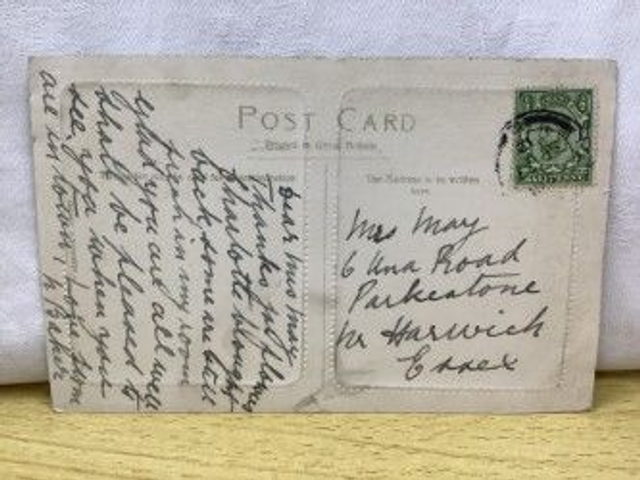 POST CARD
Printed in Great Britain
The Address is to be written
here
Dear Mrs May
Thanks for
Charlotte brought
back some are still
fresh in my room
glad you are all well
shall be pleased to
see you when you
are in town. Love from
Baker
Mrs May
6 Una Road
Parkestone
nr Harwich
Essex